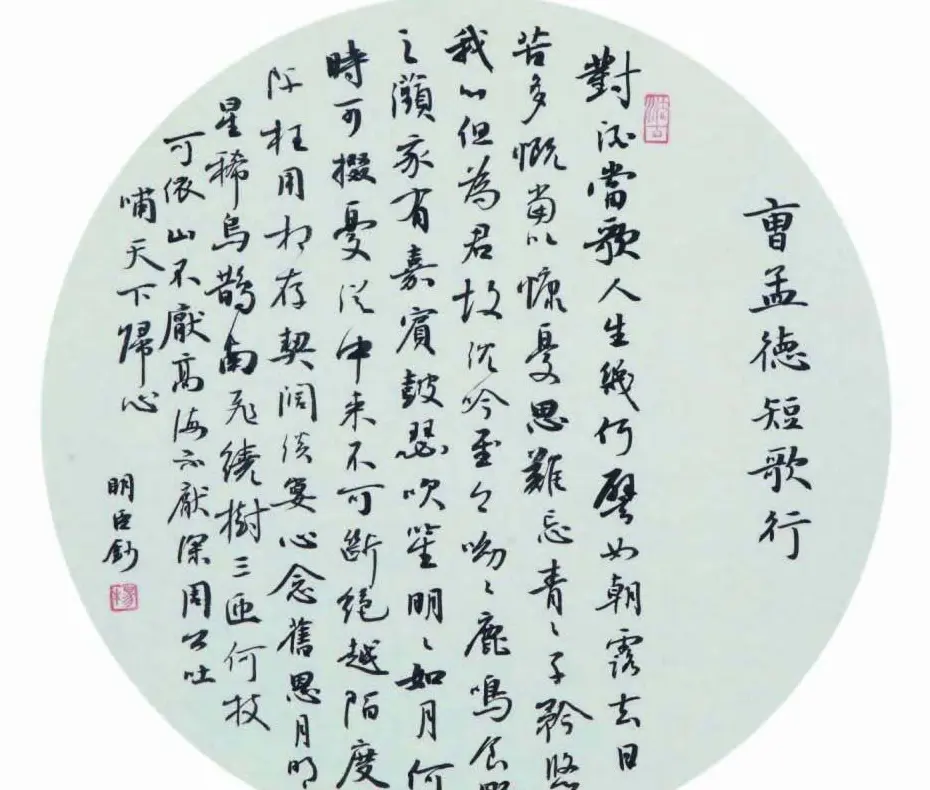 曹孟德短歌行
法古
對酒當歌人生幾何譬如朝露去日
苦多慨當以慷憂思難忘青々子矜悠
我心但為君故沈吟至今呦々鹿鳴食
之瀕我有嘉賓鼓瑟吹笙明々如月何
時可掇憂從中来不可斷絕越陌度
阡枉用相存契阔談宴心念舊恩月明
星稀烏鵲南飛繞樹三匝何枝
可依山不厭高海不厭深周公吐
哺天下歸心
明臣鈔